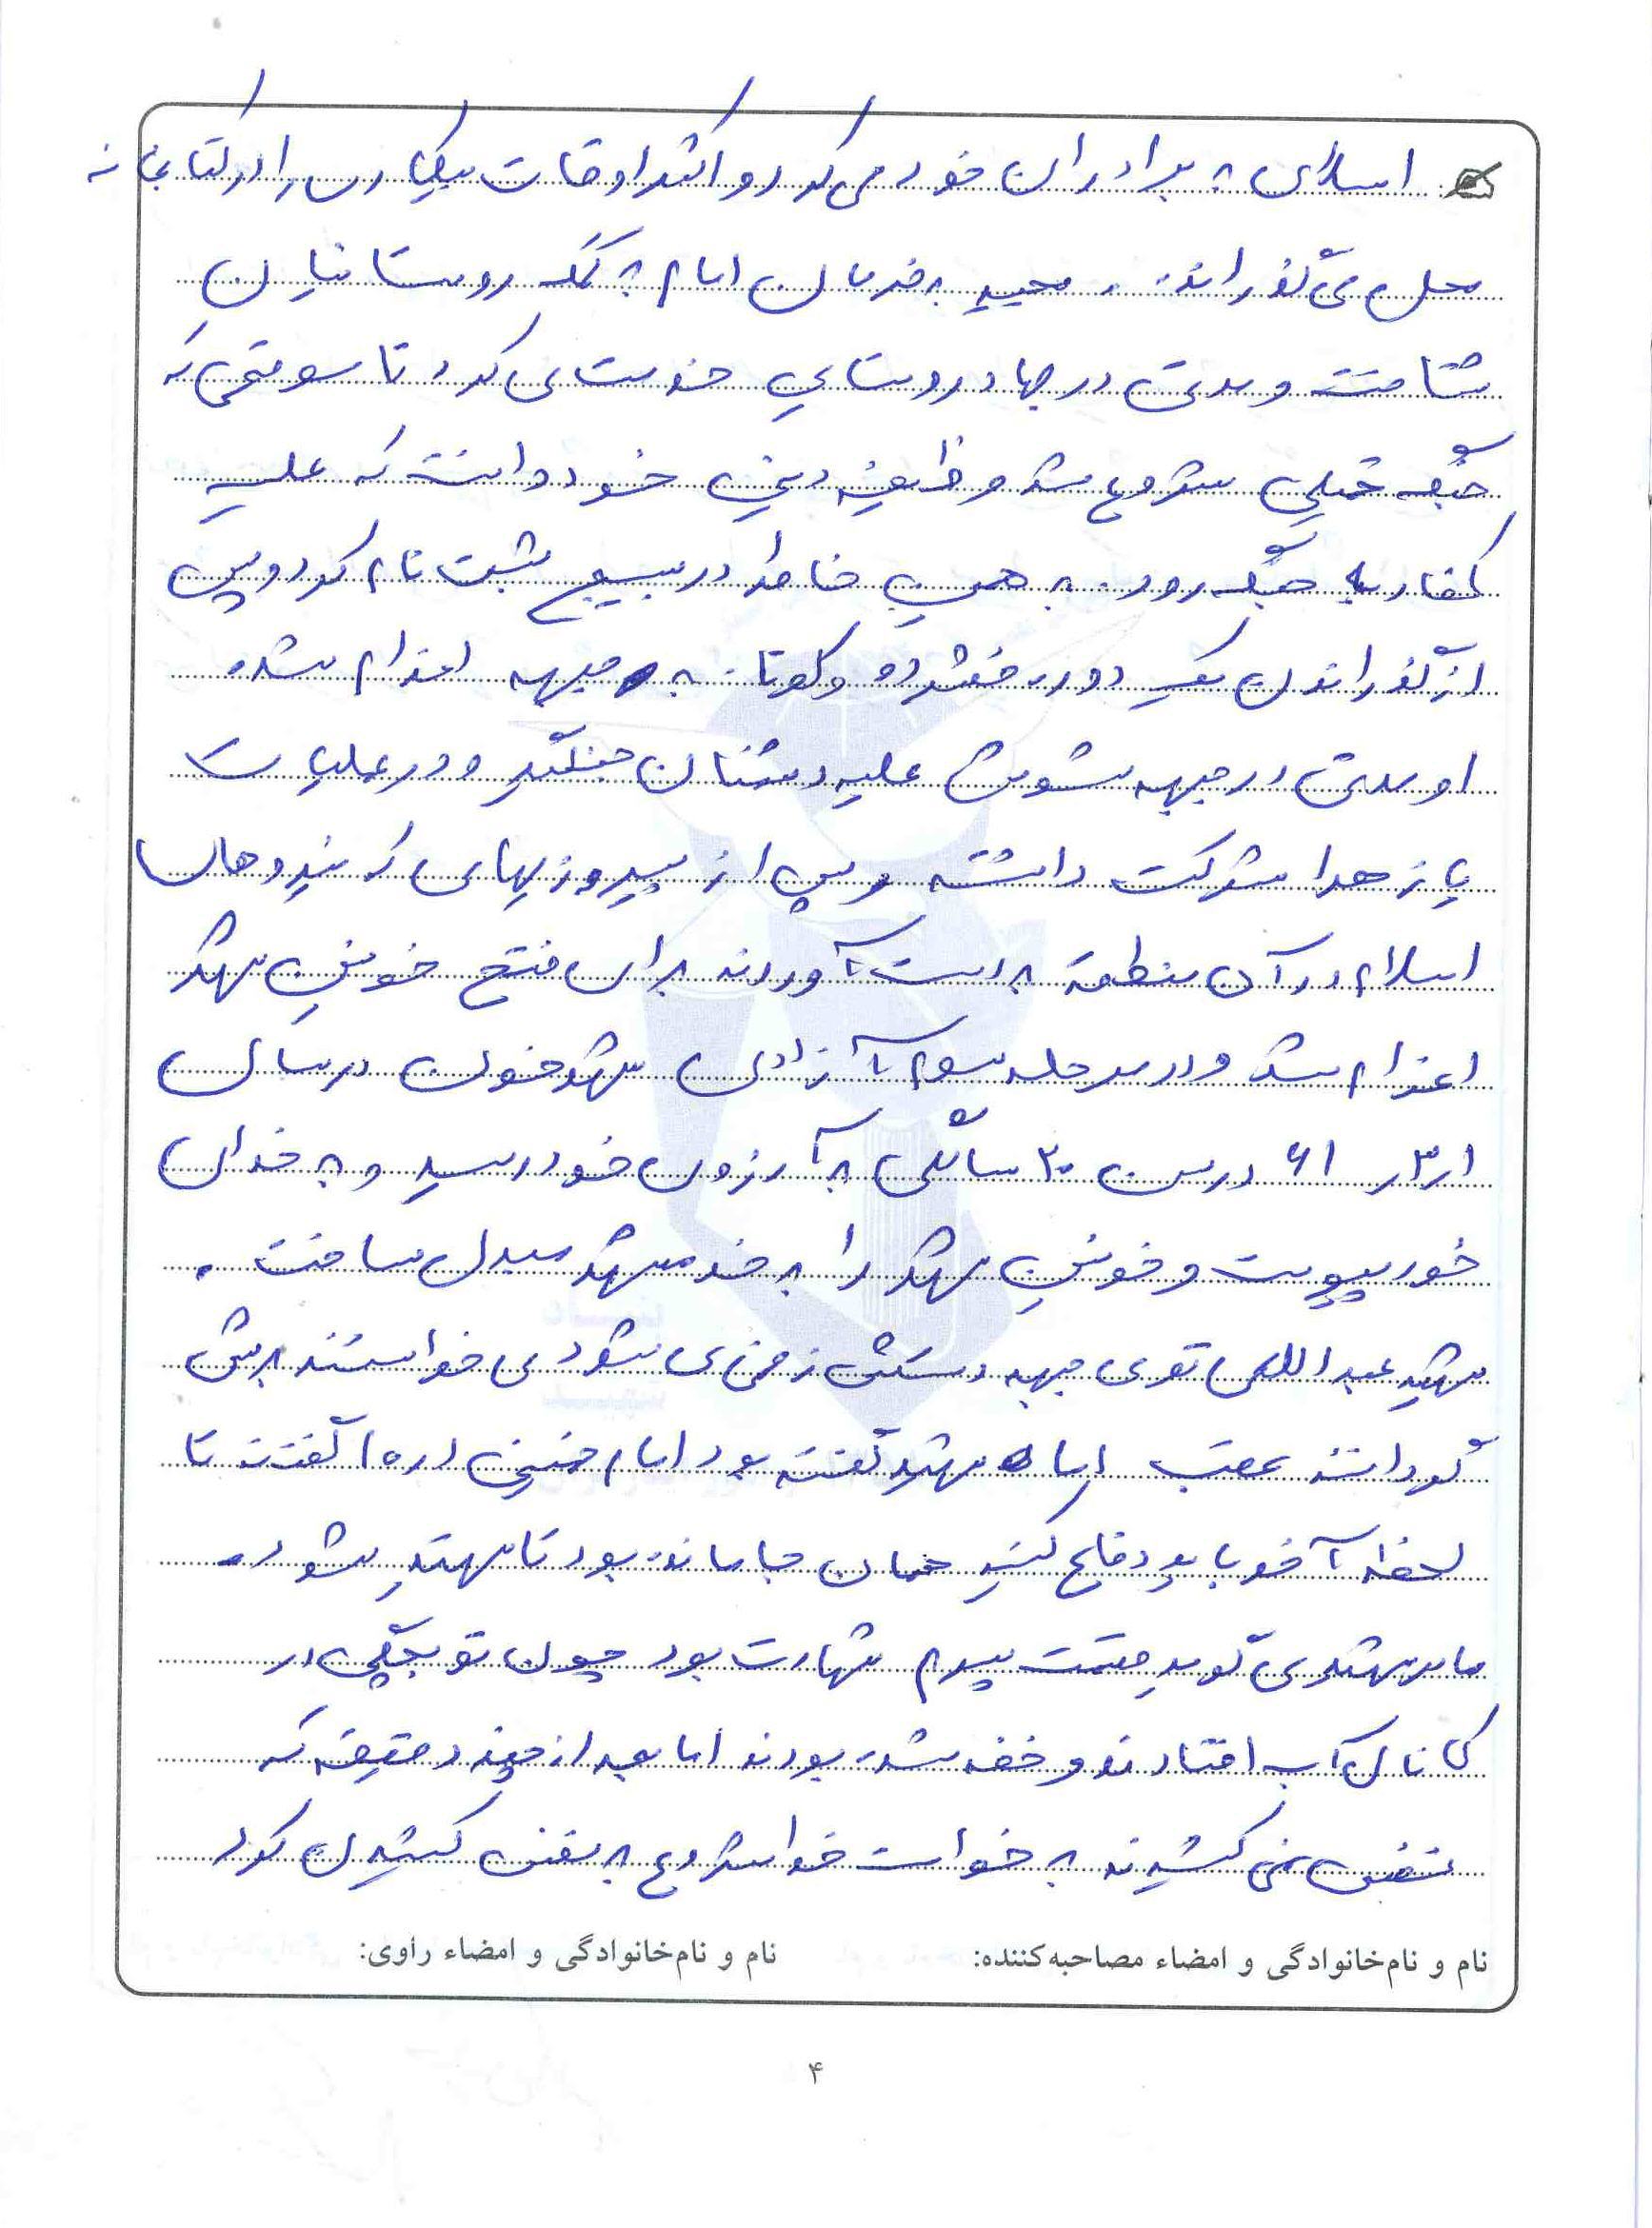 اسلامی به برادران خود می کرد و اکثر اوقات بیکاری را در کتابخانه
محل می گذراند. مجید به فرمان امام به کمک روستائیان
شتافت و مدتی در جهاد روستایی خدمت می کرد تا موقعی که
جنگ تحمیلی شروع شد وظیفه دینی خود دانست که علیه
کفار به جنگ رود. به همین خاطر در بسیج ثبت نام کرد و پس
از گذراندن یک دوره فشرده و کوتاه به جبهه اعزام شد.
او مدتی در جبهه شوش علیه دشمنان جنگید و در عملیات
یا زهدا شرکت داشته و پس از پیروزیهای که نیروهای
اسلام در آن منطقه بدست آوردند برای فتح خونین شهر
اعزام شد و در مرحله سوم آزادی شهر خون در سال
۶۱/۳/۱ در سن ۲۰ سالگی به آرزوی خود رسید و به خدای
خود پیوست و خونین شهر را به خرمشهر مبدل ساخت.
شهید عبداللهی توی جبهه دستش زخمی می شود می خواستند برش
گردانند عقب اما شهید گفته بود امام خمینی (ره) گفتند تا
لحظه آخر باید دفاع کنید همان جا مانده بود تا شهید شود.
مادر شهید می گوید قسمت پسرم شهادت بود چون تو بچگی در
کانال آب افتادند و خفه شده بودند اما بعد از چند دقیقه که
نفس نمی کشیدند به خواست خدا شروع به نفس کشیدن کرد
نام و نام‌خانوادگی و امضاء مصاحبه‌کننده: نام و نام‌خانوادگی و امضاء راوی:
۴